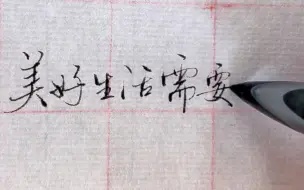 美好生活需要